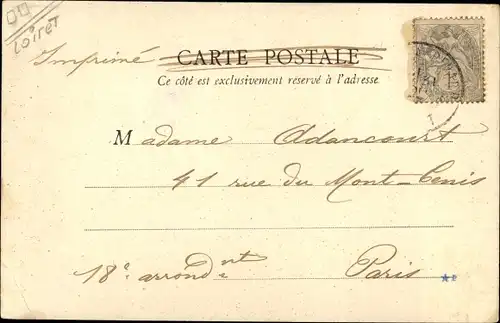 Loiret
Imprimé CARTE POSTALE
Ce côté est exclusivement réservé à l'adresse
Madame Adancourt
41 rue du Mont-Cenis
18e arrondnt Paris